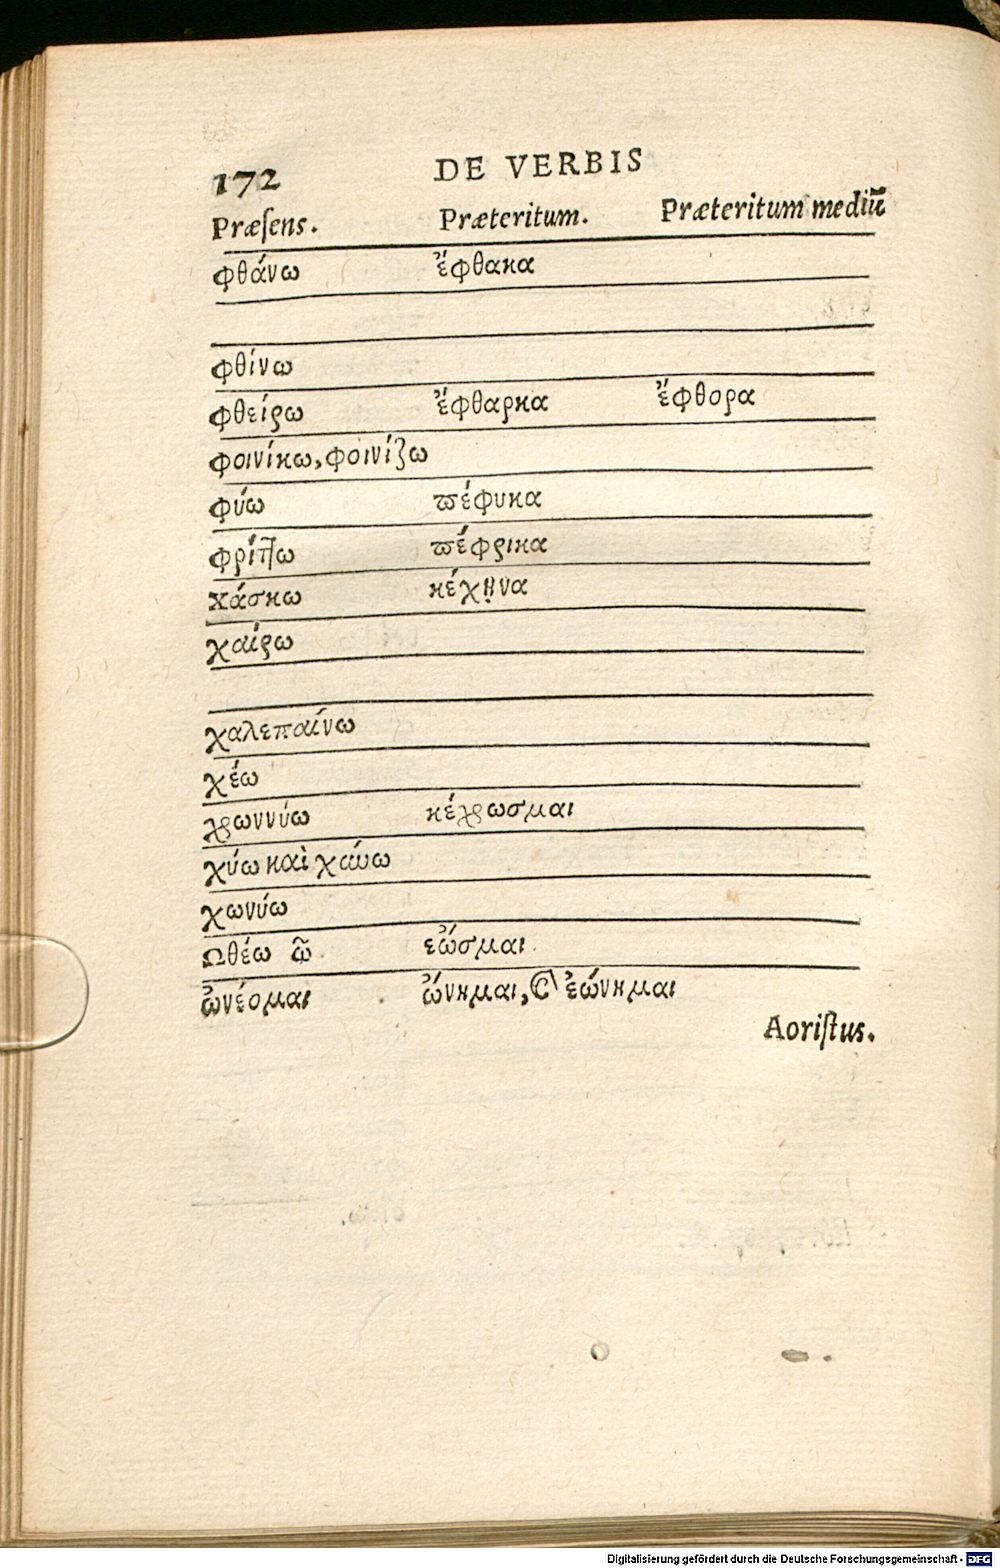 172 DE VERBIS
Præſens. Præteritum. Præteritum mediū
φθάνω ἔφθακα
φθίνω
φθείρω ἔφθαρκα ἔφθορα
φοινίκω, φοινίζω
φύω πέφυκα
φρίπτω πέφρικα
χάσκω κέχηνα
χαίρω
χαλεπαίνω
χέω
χρωννύω κέχρωσμαι
χύω καὶ χαύω
χωνύω
Ωθέω ῶ εὦσμαι
ὠνέομαι ὤνημαι, & ἐώνημαι
Aoriſtus.
Digitalisierung gefördert durch die Deutsche Forschungsgemeinschaft - DFG